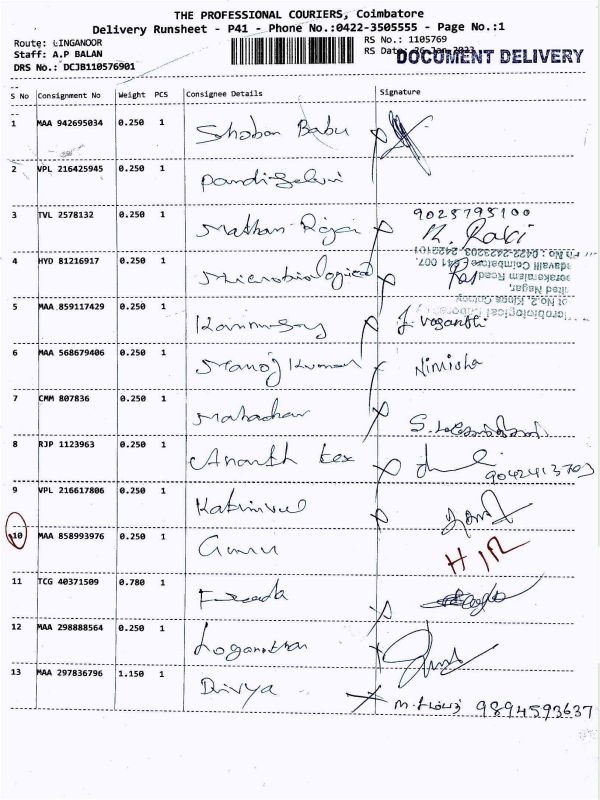 THE PROFESSIONAL COURIERS, Coimbatore
Delivery Runsheet - P41 - Phone No.:0422-3505555 - Page No.:1
Route: LINGANOOR
Staff: A.P BALAN
DRS No.: DCJB110576901
RS No.: 1105769
RS Date: 26-Jan-2023
DOCUMENT DELIVERY
S No Consignment No Weight PCS Consignee Details Signature
1 MAA 942695034 0.250 1 Shoban Babu
2 VPL 216425945 0.250 1 Pandiselvi
3 TVL 2578132 0.250 1 Mathan Raja 9025795100
M. Ravi
4 HYD 81216917 0.250 1 Microbiological
5 MAA 859117429 0.250 1 J. Vasanthi
6 MAA 568679406 0.250 1 Manoj Kumar Nimisha
7 CMM 807836 0.250 1
8 RJP 1123963 0.250 1 Ananth tex 9042413703
9 VPL 216617806 0.250 1 Kathirvel
10 MAA 858993976 0.250 1 Guru
11 TCG 40371509 0.780 1
12 MAA 298888564 0.250 1 Loganathan
13 MAA 297836796 1.150 1 Divya 9894593637